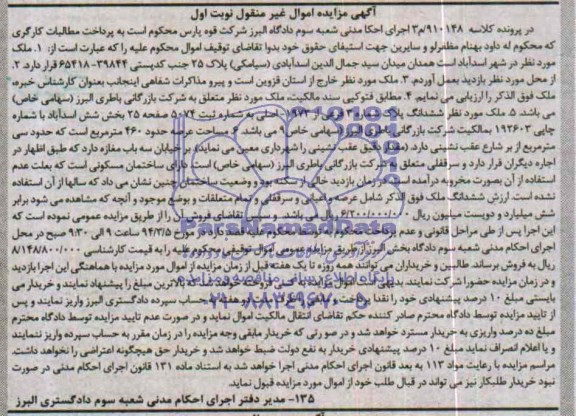 آگهی مزایده اموال غیر منقول نوبت اول
در پرونده کلاسه ۹۱۰۱۴۸/م۳ اجرای احکا مدنی شعبه سوم دادگاه البرز شرکت قوه پارس محکوم است به پرداخت مطالبات کارگری
که محکوم له داود بهنام مظفرلو و سایرین جهت استیفای حقوق خود بدوا تقاضای توقیف اموال محکوم علیه را که عبارت است از: ۱. ملک
مورد نظر در شهر اسدآباد است همدان میدان سید جمال الدین اسدآبادی (سیامکی) پلاک ۲۵ جنب کدپستی ۳۹۸۴۴-۶۵۴۱۸ قرار دارد. ۲.
از محل مورد نظر بازدید بعمل آوردم. ۳. ملک مورد نظر خارج از استان قزوین است و پیرو مذاکرات شفاهی اینجانب بعنوان کارشناس خبره،
ملک فوق الذکر را ارزیابی می نمایم. ۴. مطابق فتوکپی سند مالکیت، ملک مورد نظر متعلق به شرکت بازرگانی باطری البرز (سهامی خاص)
می باشد. ۵. ملک مورد نظر ششدانگ پلاک ثبتی فرعی از ۱۹۷۳ اصلی به شماره ثبت ۵۰۷۴ صفحه ۲۵ بخش شش اسدآباد با شماره
چاپی ۱۹۲۶۰۳ بمالکیت شرکت بازرگانی باطری البرز (سهامی خاص) می باشد. ۶. مساحت عرصه حدود ۴۶۰ مترمربع است که حدود سی
مترمربع از بر شارع عقب نشینی دارد (میزان دقیق عقب نشینی را شهرداری معین می نماید) بر خیابان سه باب مغازه دارد که طبق اظهار در
اجاره دیگران قرار دارد و سرقفلی متعلق به شرکت بازرگانی باطری البرز (سهامی خاص) است. دارای ساختمان مسکونی است که بعلت عدم
استفاده از آن بصورت مخروبه درآمده است. در زمان بازدید خالی از سکنه بود و وضعیت ساختمان چنین نشان می داد که سالها از آن استفاده
نشده است. ارزش ششدانگ ملک فوق الذکر شامل عرصه و اعیانی و سرقفلی و تمام متعلقات و بوضع موجود و آنچه که مشاهده می شود برابر
شش میلیارد و دویست میلیون ریال ۶/۲۰۰/۰۰۰/۰۰۰ ریال می باشد. و سپس تقاضای فروش آن را از طریق مزایده عمومی نموده است که
این اجرا پس از طی مراحل قانونی و عدم علیه قصد دارد در مورخ ۹۴/۳/۵ ساعت ۹ الی ۹:۳۰ صبح در محل
اجرای احکام مدنی شعبه سوم دادگاه بخش البرز از طریق مزایده عمومی اموال توقیفی محکوم علیه را به قیمت کارشناسی ۸/۱۴۸/۸۰۰/۰۰۰
ریال به فروش برساند. طالبین و خریداران می توانند همه روزه تا یک هفته قبل از زمان مزایده از اموال مورد مزایده با هماهنگی این اجرا بازدید
و در زمان مزایده حضورا شرکت نمایند. بدیهی است اموال مزایده به کسی فروخته می شود که بالاترین مبلغ را پیشنهاد نمایند و خریدار می
بایستی مبلغ ۱۰ درصد پیشنهادی خود را نقدا پرداخت و هفته به حساب سپرده دادگستری البرز واریز نمایند و پس
از تایید مزایده توسط دادگاه محترم صادر کننده حکم تقاضای انتقال مالکیت اموال نماید و در صورت عدم تایید مزایده توسط دادگاه محترم
مبلغ ده درصد واریزی به خریدار مسترد خواهد شد. و در صورتی که خریدار مابقی وجه مزایده را در زمان مقرر به حساب سپرده واریز ننمایند
و یا اعلام انصراف نماید مبلغ ۱۰ درصد پیشنهادی خریدار به نفع دولت ضبط خواهد شد و خریدار حق هیچگونه اعتراضی را نخواهد داشت.
مراسم مزایده با رعایت مواد ۱۱۳ به بعد قانون اجرای احکام مدنی اجرا خواهد شد به استناد ماده ۱۳۱ قانون اجرای احکام مدنی در صورت
نبود خریدار طلبکار نیز می تواند در قبال طلب خود از اموال مورد مزایده قبول نماید.
۱۳۵- مدیر دفتر اجرای احکام مدنی شعبه سوم دادگستری البرز